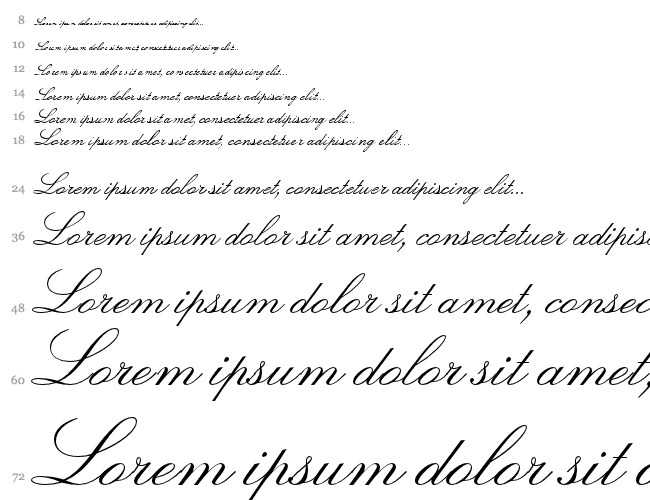 8 Lorem ipsum dolor sit amet, consectetuer adipiscing elit...
10 Lorem ipsum dolor sit amet, consectetuer adipiscing elit...
12 Lorem ipsum dolor sit amet, consectetuer adipiscing elit...
14 Lorem ipsum dolor sit amet, consectetuer adipiscing elit...
16 Lorem ipsum dolor sit amet, consectetuer adipiscing elit...
18 Lorem ipsum dolor sit amet, consectetuer adipiscing elit...
24 Lorem ipsum dolor sit amet, consectetuer adipiscing elit...
36 Lorem ipsum dolor sit amet, consectetuer adipis
48 Lorem ipsum dolor sit amet, consec
60 Lorem ipsum dolor sit amet,
72 Lorem ipsum dolor sit a